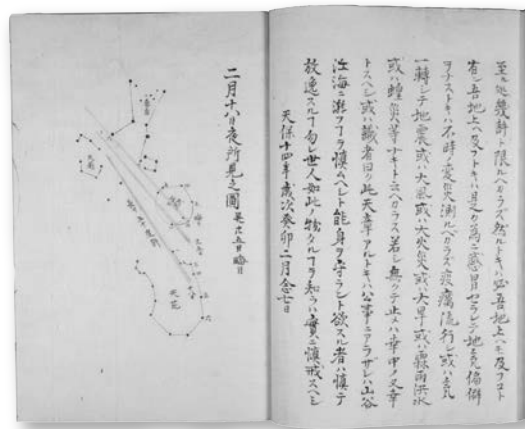 至ル 幾許ト限ルベカラズ然ルトキハ必吾地上ヘモ及フコト
有ン吾地上ヘ及フトキハ是カ為ニ感冒セラレテ地気偏僻
ヲナストキハ不時ノ変災測ルベカラズ疫癘流行シ或ハ気
一轉シテ地震或ハ大風或ハ大火災或ハ大旱或ハ霖雨洪水
或ハ蝗災等ナキト云ヘカラス若シ無クテ止メハ幸中ノ又幸
トスヘシ或ハ識者曰ク此天章アルトキハ公事ニアラサレハ山谷
江海ニ游フヿヲ慎ムヘシト能身ヲ守ラント欲スル者ハ慎テ
放逸スルヿ勿レ世人如此ノ物タルヿヲ知ラハ實ニ慎戒スヘシ
天保十四年歳次癸卯二月念七日
二月十八日夜所見之圖
天苑